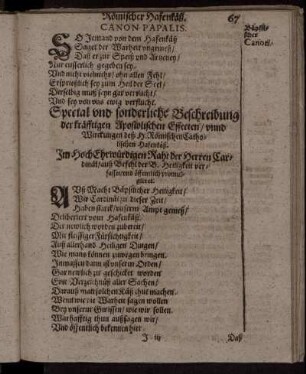 Römischer Hasenkäß. 67
CANON PAPALIS.
Bäpstischer
Canon.
SO Jemand von dem Hasenkäß
Saget der Warheit ungemeß/
Daß er zur Speiß und Artzeney/
Nur eusserlich gegeben sey.
Und nicht vielmehr/ ohn allen Fehl/
Ersprießlich sey zum Heil der Seel/
Derselbig muß seyn gar verrucht/
Und sey von uns ewig verflucht.
Special und sonderliche Beschreibung
der kräfftigen Apostolischen Effecten/ unnd
Wirckungen deß H. Römischen Catho-
lischen Hasenkäß.
Im Hoch Ehrwürdigen Raht der Herren Car-
dinäl/ auß Befehl der B. Heiligkeit ver-
fasset/ und öffentlich promul-
giret.
AUß Macht Bäpstlicher Heiligkeit/
Wir Cardinäl zu dieser Zeit/
Haben starck/ unserm Ampt gemeß/
Deliberiert vom Hasenkäß.
Der newlich worden zubereit/
Mit fleissiger Fürsichtigkeit/
Auß allerhand Heiligen Dingen/
Wie mans können zuwegen bringen.
Inmassen dann ist unserm Orden/
Gar newlich zu geschicket worden
Ein Verzeichnüß aller Sachen/
Darauß man solchen Käß thut machen.
Wenn wir die Warheit sagen wollen
Bey unserm Gwissen/ wie wir sollen.
Warhafftig thun außsagen wir/
Und öffentlich bekennen hier
J iij Daß